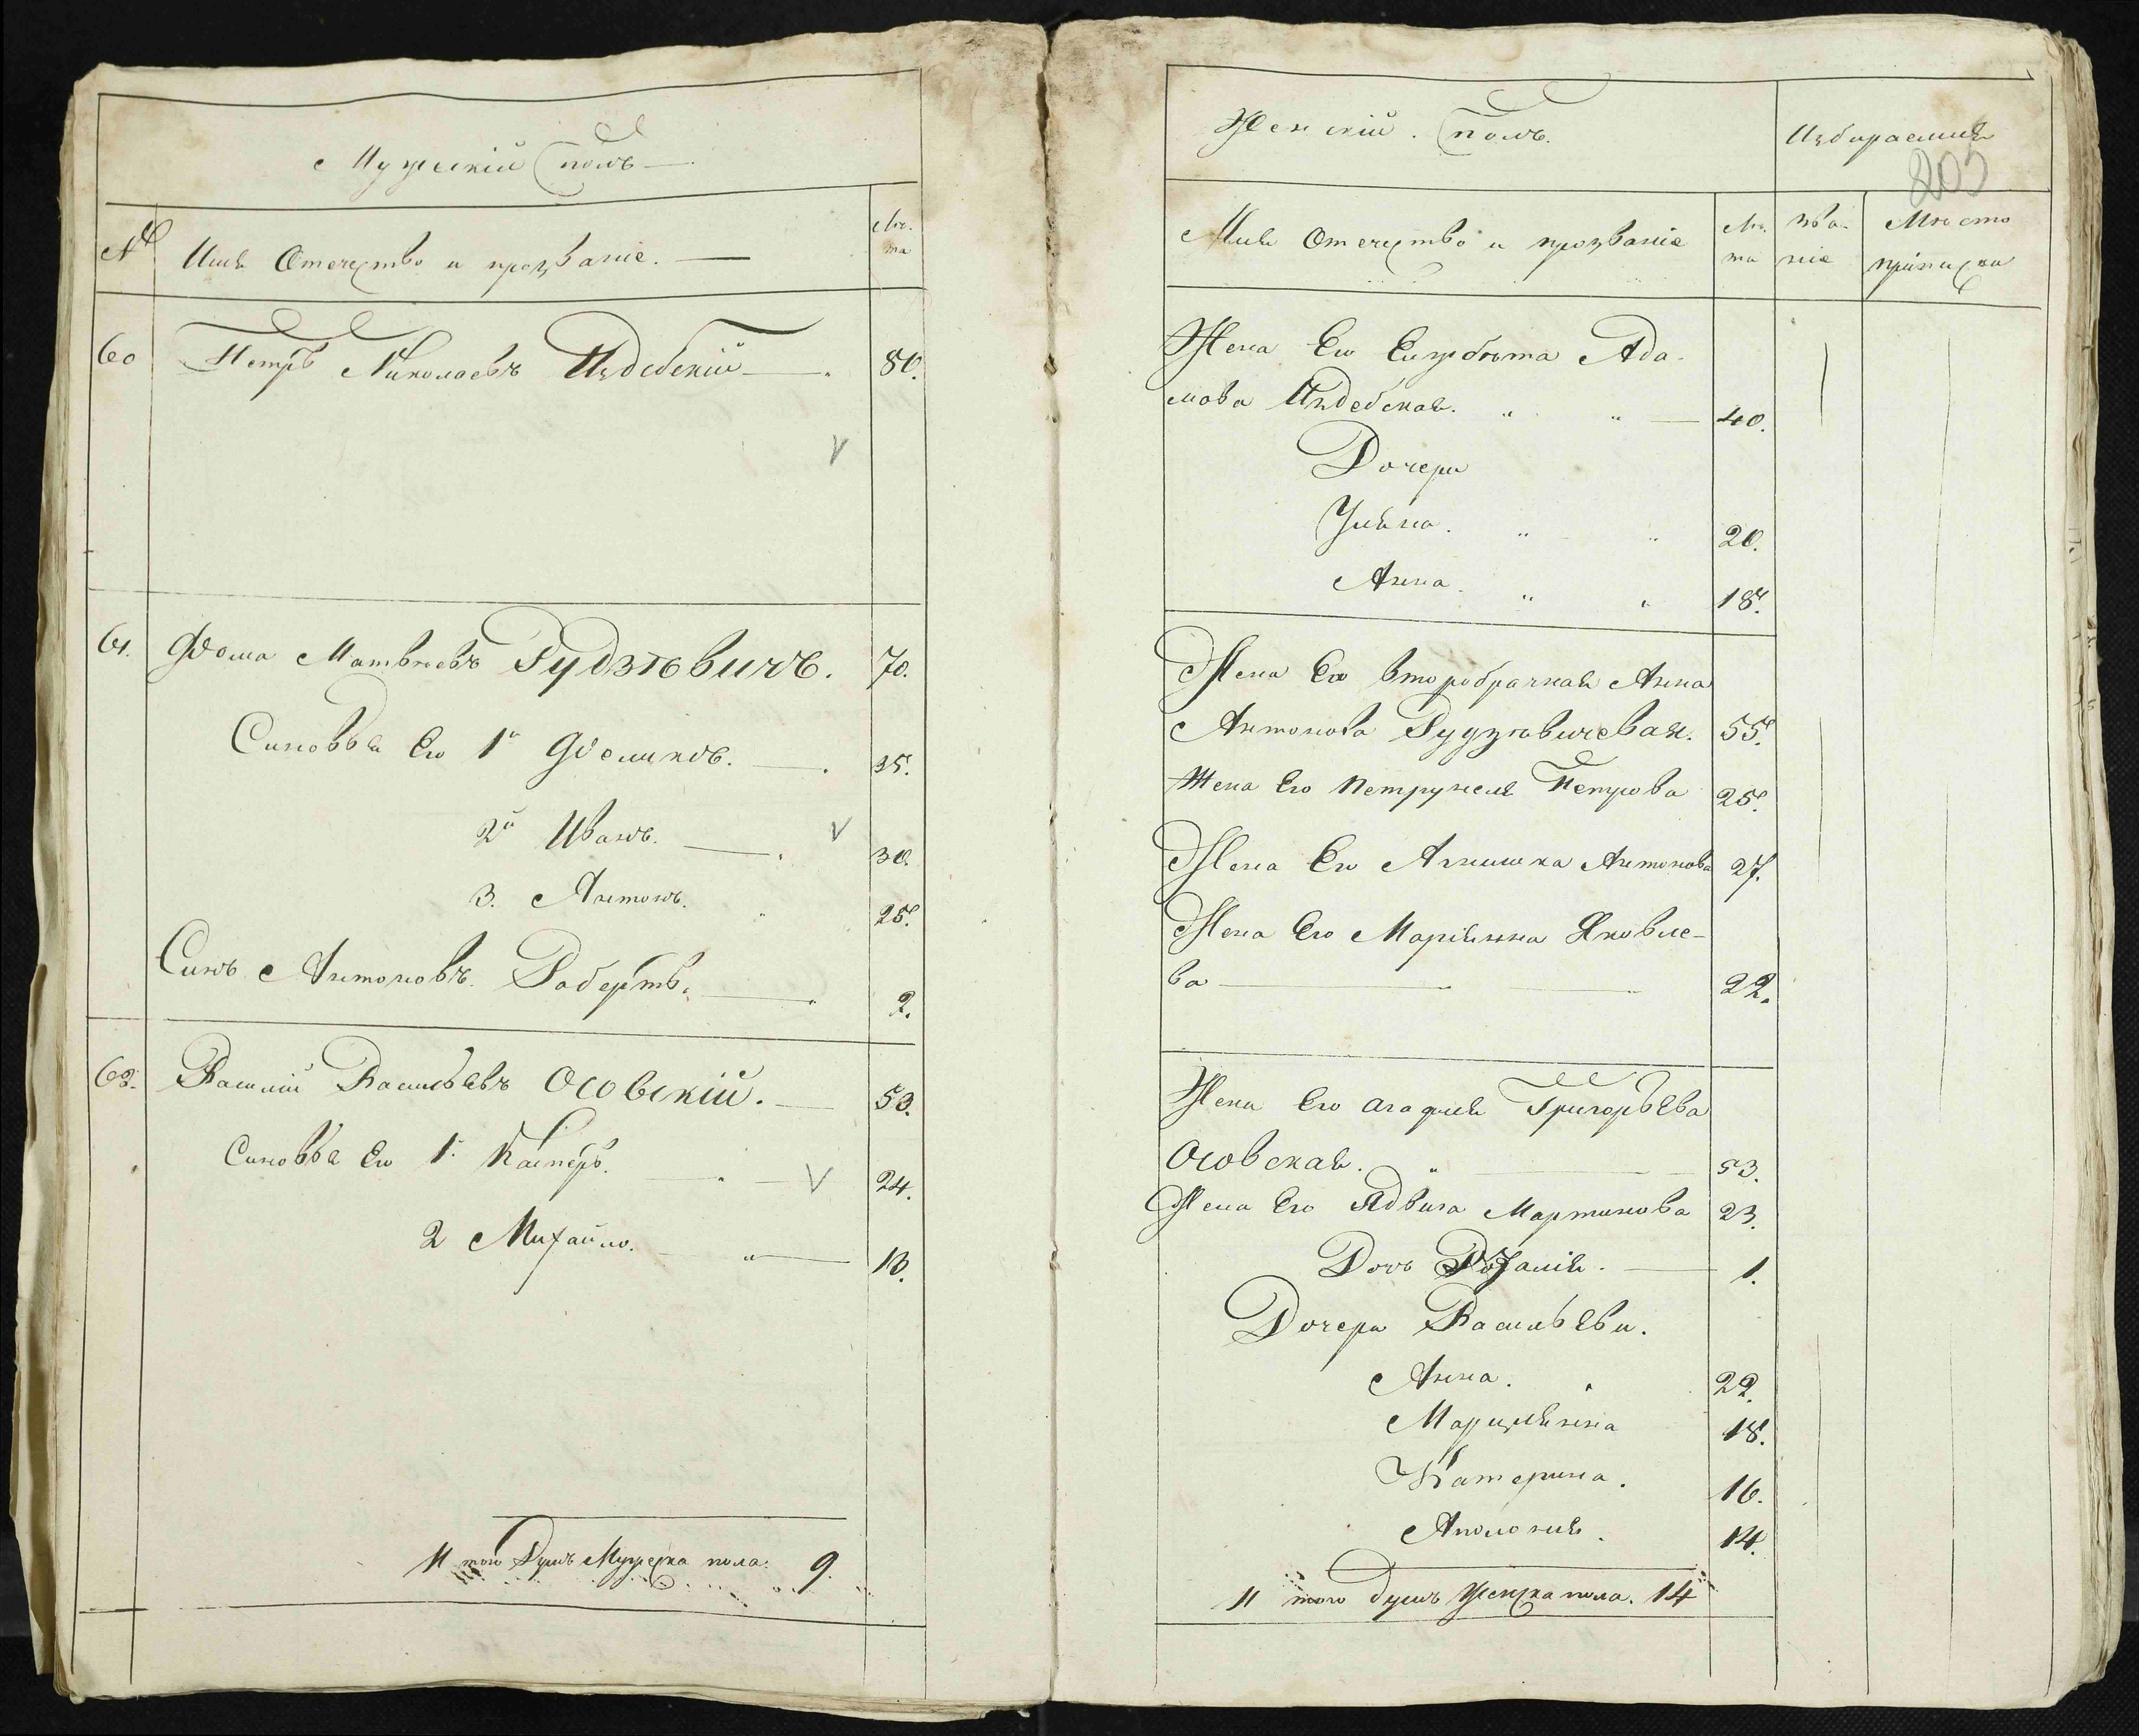 Мужескій полъ
№ Имя Отечество и прозваніе. Лѣ-
та
60 Петръ Николаевъ Издебскій 50.
61. Фома Матвѣевъ Рудзѣвичъ. 70.
Синовья Его 1й Феликсъ. 35.
2й Иванъ. 30.
3. Антонъ. 25.
Синъ Антоновъ. Робертъ. 2.
62. Василій Васильевъ Осовскій. 53.
Синовья Его 1. Касперъ. 24.
2 Михайло. 13.
И того Душъ Мужеска пола. 9.
Женскій. полъ. Избираемия
205
Имя Отечество и прозваніе Лѣ- Зва- Мѣсто
та ніе приписки
Жена Его Елжбѣта Ада-
мова Издебская. 40.
Дочери
Уляна. 20.
Анна. 18.
Жена Его второбрачная Анна
Антонова Рудзѣвичевая. 55.
Жена Его Петрунеля Петрова 25.
Жена Его Агнишка Антонова 27.
Жена Его Маріянна Яковле-
ва 22.
Жена Его Агафія Григорьева
Осовская. 53.
Жена Его Ядвига Мартинова 23.
Дочь Розалія. 1.
Дочери Васильеви.
Анна. 22.
Марцыянна 18.
Катерина. 16.
Аполонія. 14.
И того душъ Женска пола. 14